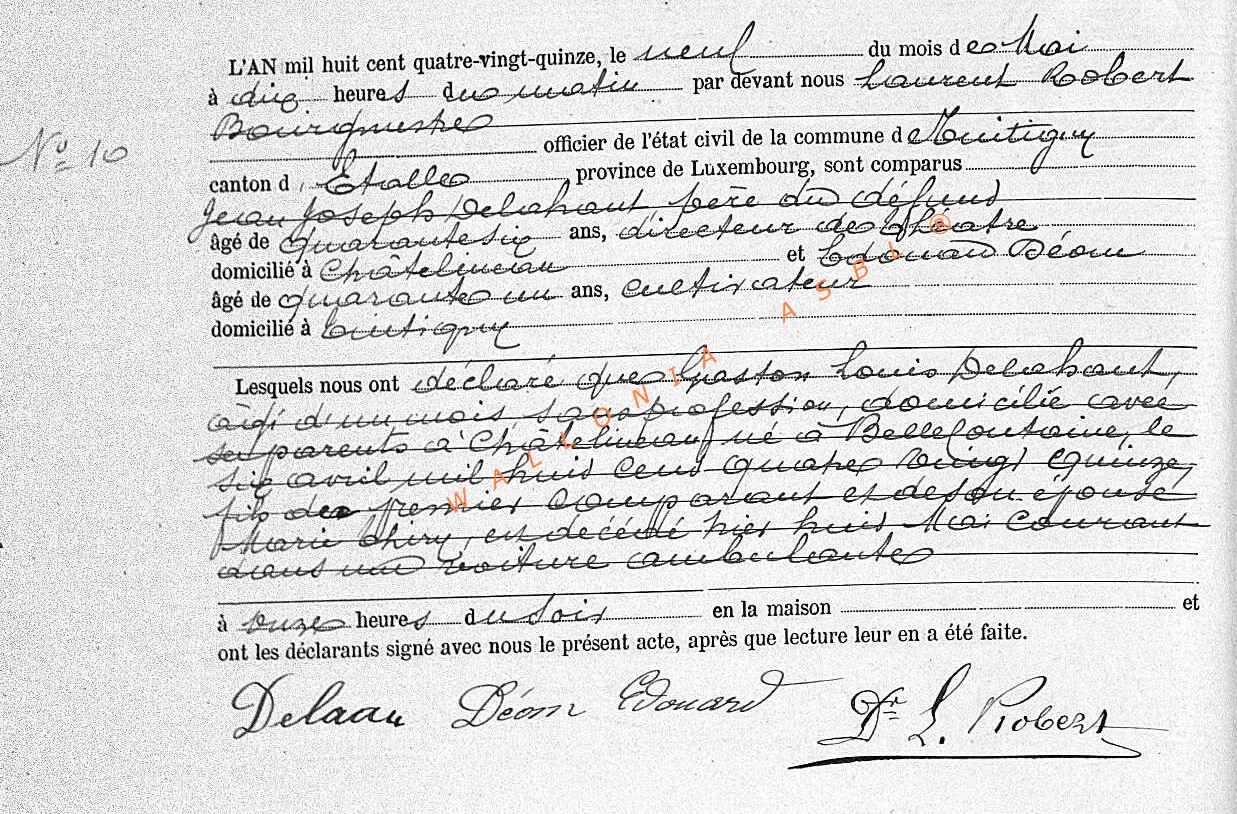 L'AN mil huit cent quatre-vingt-quinze, le neuf du mois de Mai
à dix heures du matin par devant nous Laurent Robert
Bourgmestre
officier de l'état civil de la commune de Tintigny
Nº 10
canton d'Etalle, province de Luxembourg, sont comparus
Jean Joseph Delahaut père du défunt
âgé de quarante six ans, directeur de théatre
domicilié à Châtelineau et Edouard Déom
âgé de quarante un ans, cultivateur
domicilié à Tintigny
Lesquels nous ont déclaré que Gaston Louis Delahaut,
âgé d'un mois, sans profession, domicilié avec
ses parents à Châtelineau, né à Bellefontaine, le
six avril mil huit cent quatre vingt quinze,
fils du premier comparant et de son épouse
Marie Thiry, est décédé hier huit Mai courant
dans une voiture ambulante
à onze heures du soir en la maison et
ont les déclarants signé avec nous le présent acte, après que lecture leur en a été faite.
Delaau Déom Edouard Dr L. Robert
WALLONIA ASBL @